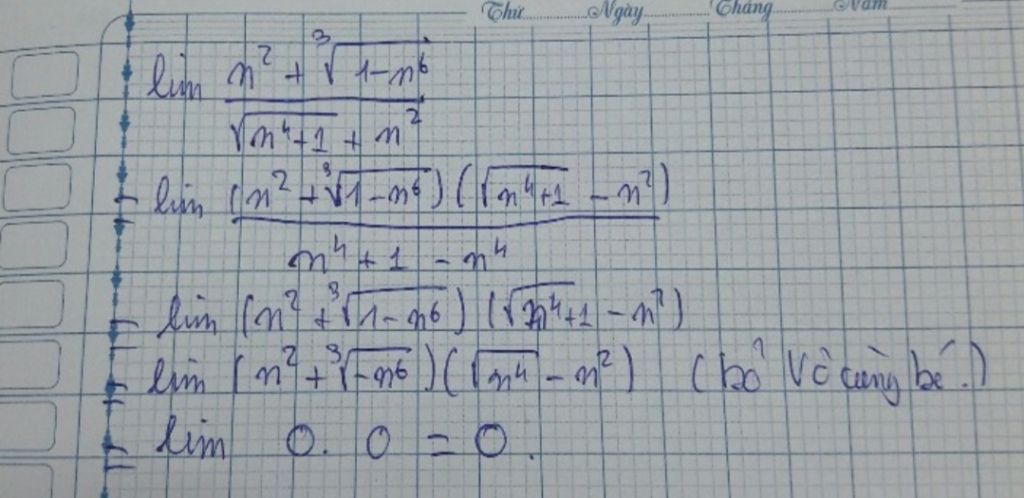 Thứ Ngày Tháng Năm
lim (n² + ∛(1-n⁶)) / (√(n⁴+1) + n²)
= lim ((n² + ∛(1-n⁶)) (√(n⁴+1) - n²)) / (n⁴ + 1 - n⁴)
= lim (n² + ∛(1-n⁶)) (√(n⁴+1) - n²)
= lim (n² + ∛(-n⁶)) (√(n⁴) - n²) (bỏ Vô cùng bé.)
= lim 0. 0 = 0.